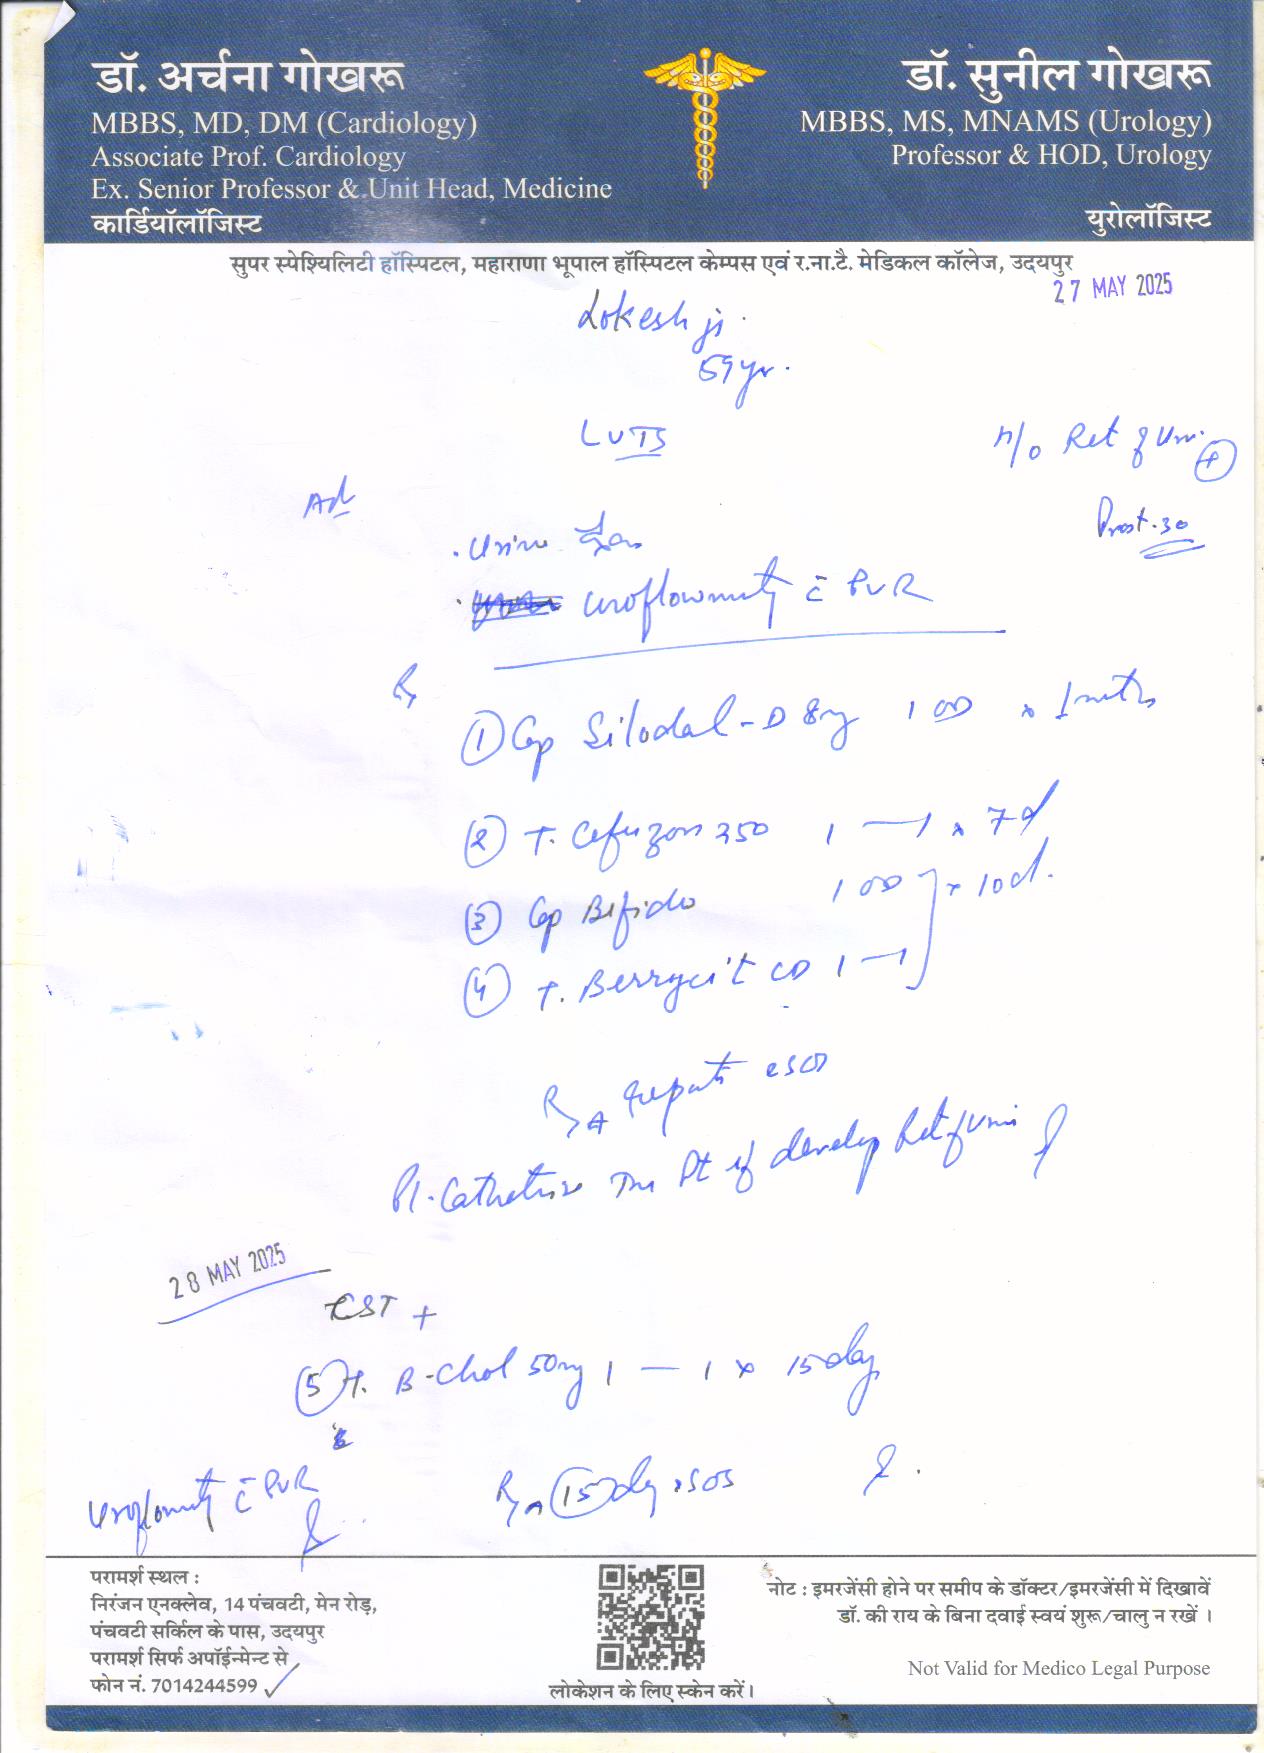 डॉ. अर्चना गोखरू
MBBS, MD, DM (Cardiology)
Associate Prof. Cardiology
Ex. Senior Professor & Unit Head, Medicine
कार्डियॉलॉजिस्ट
डॉ. सुनील गोखरू
MBBS, MS, MNAMS (Urology)
Professor & HOD, Urology
युरोलॉजिस्ट
सुपर स्पेश्यिलिटी हॉस्पिटल, महाराणा भूपाल हॉस्पिटल केम्पस एवं र.ना.टै. मेडिकल कॉलेज, उदयपुर
27 MAY 2025
Lokesh ji
59 yr.
LUTS
H/o Ret of Uri. +
Prost. 30
Ad
. Urine
. Uroflowmety c̄ PVR
Rx
① Cap Silodal-D 8mg 1 OD x 1 mth
② T. Cefuzon 250 1 — 1 x 7d
③ Cap Bifido 1 OD
x 10d.
④ T. Berrycit CD 1 — 1
R/A reports
Pl. Catheterise The Pt if develop Ret of Urine
28 MAY 2025
CST +
⑤ T. B-Chol 50mg 1 — 1 x 15 day
Uroflowmety c̄ PVR
R/A 15 day / SOS
परामर्श स्थल :
निरंजन एनक्लेव, 14 पंचवटी, मेन रोड़,
पंचवटी सर्किल के पास, उदयपुर
परामर्श सिर्फ अपॉईन्मेन्ट से
फोन नं. 7014244599
लोकेशन के लिए स्केन करें।
नोट : इमरजेंसी होने पर समीप के डॉक्टर/इमरजेंसी में दिखावें
डॉ. की राय के बिना दवाई स्वयं शुरू/चालु न रखें ।
Not Valid for Medico Legal Purpose